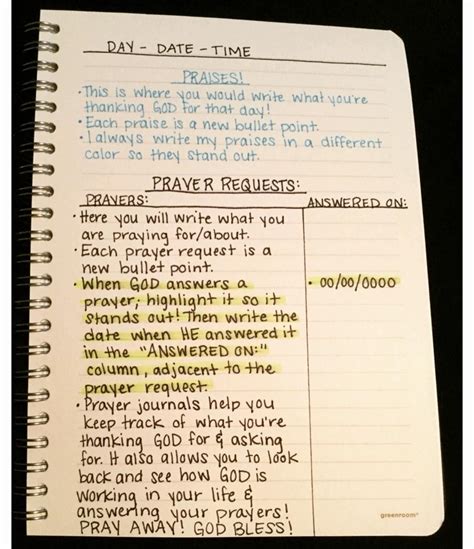 DAY - DATE - TIME
PRAISES!
• This is where you would write what you're
thanking GOD for that day!
• Each praise is a new bullet point.
• I always write my praises in a different
color so they stand out.
PRAYER REQUESTS:
PRAYERS:
ANSWERED ON:
• Here you will write what you
are praying for/about.
• Each prayer request is a
new bullet point.
• When GOD answers a
prayer; highlight it so it
stands out! Then write the
date when HE answered it
in the "ANSWERED ON:"
column, adjacent to the
prayer request.
• 00/00/0000
• Prayer journals help you
keep track of what you're
thanking GOD for & asking
for. It also allows you to look
back and see how GOD is
working in your life &
answering your prayers!
PRAY AWAY! GOD BLESS!
greenroom